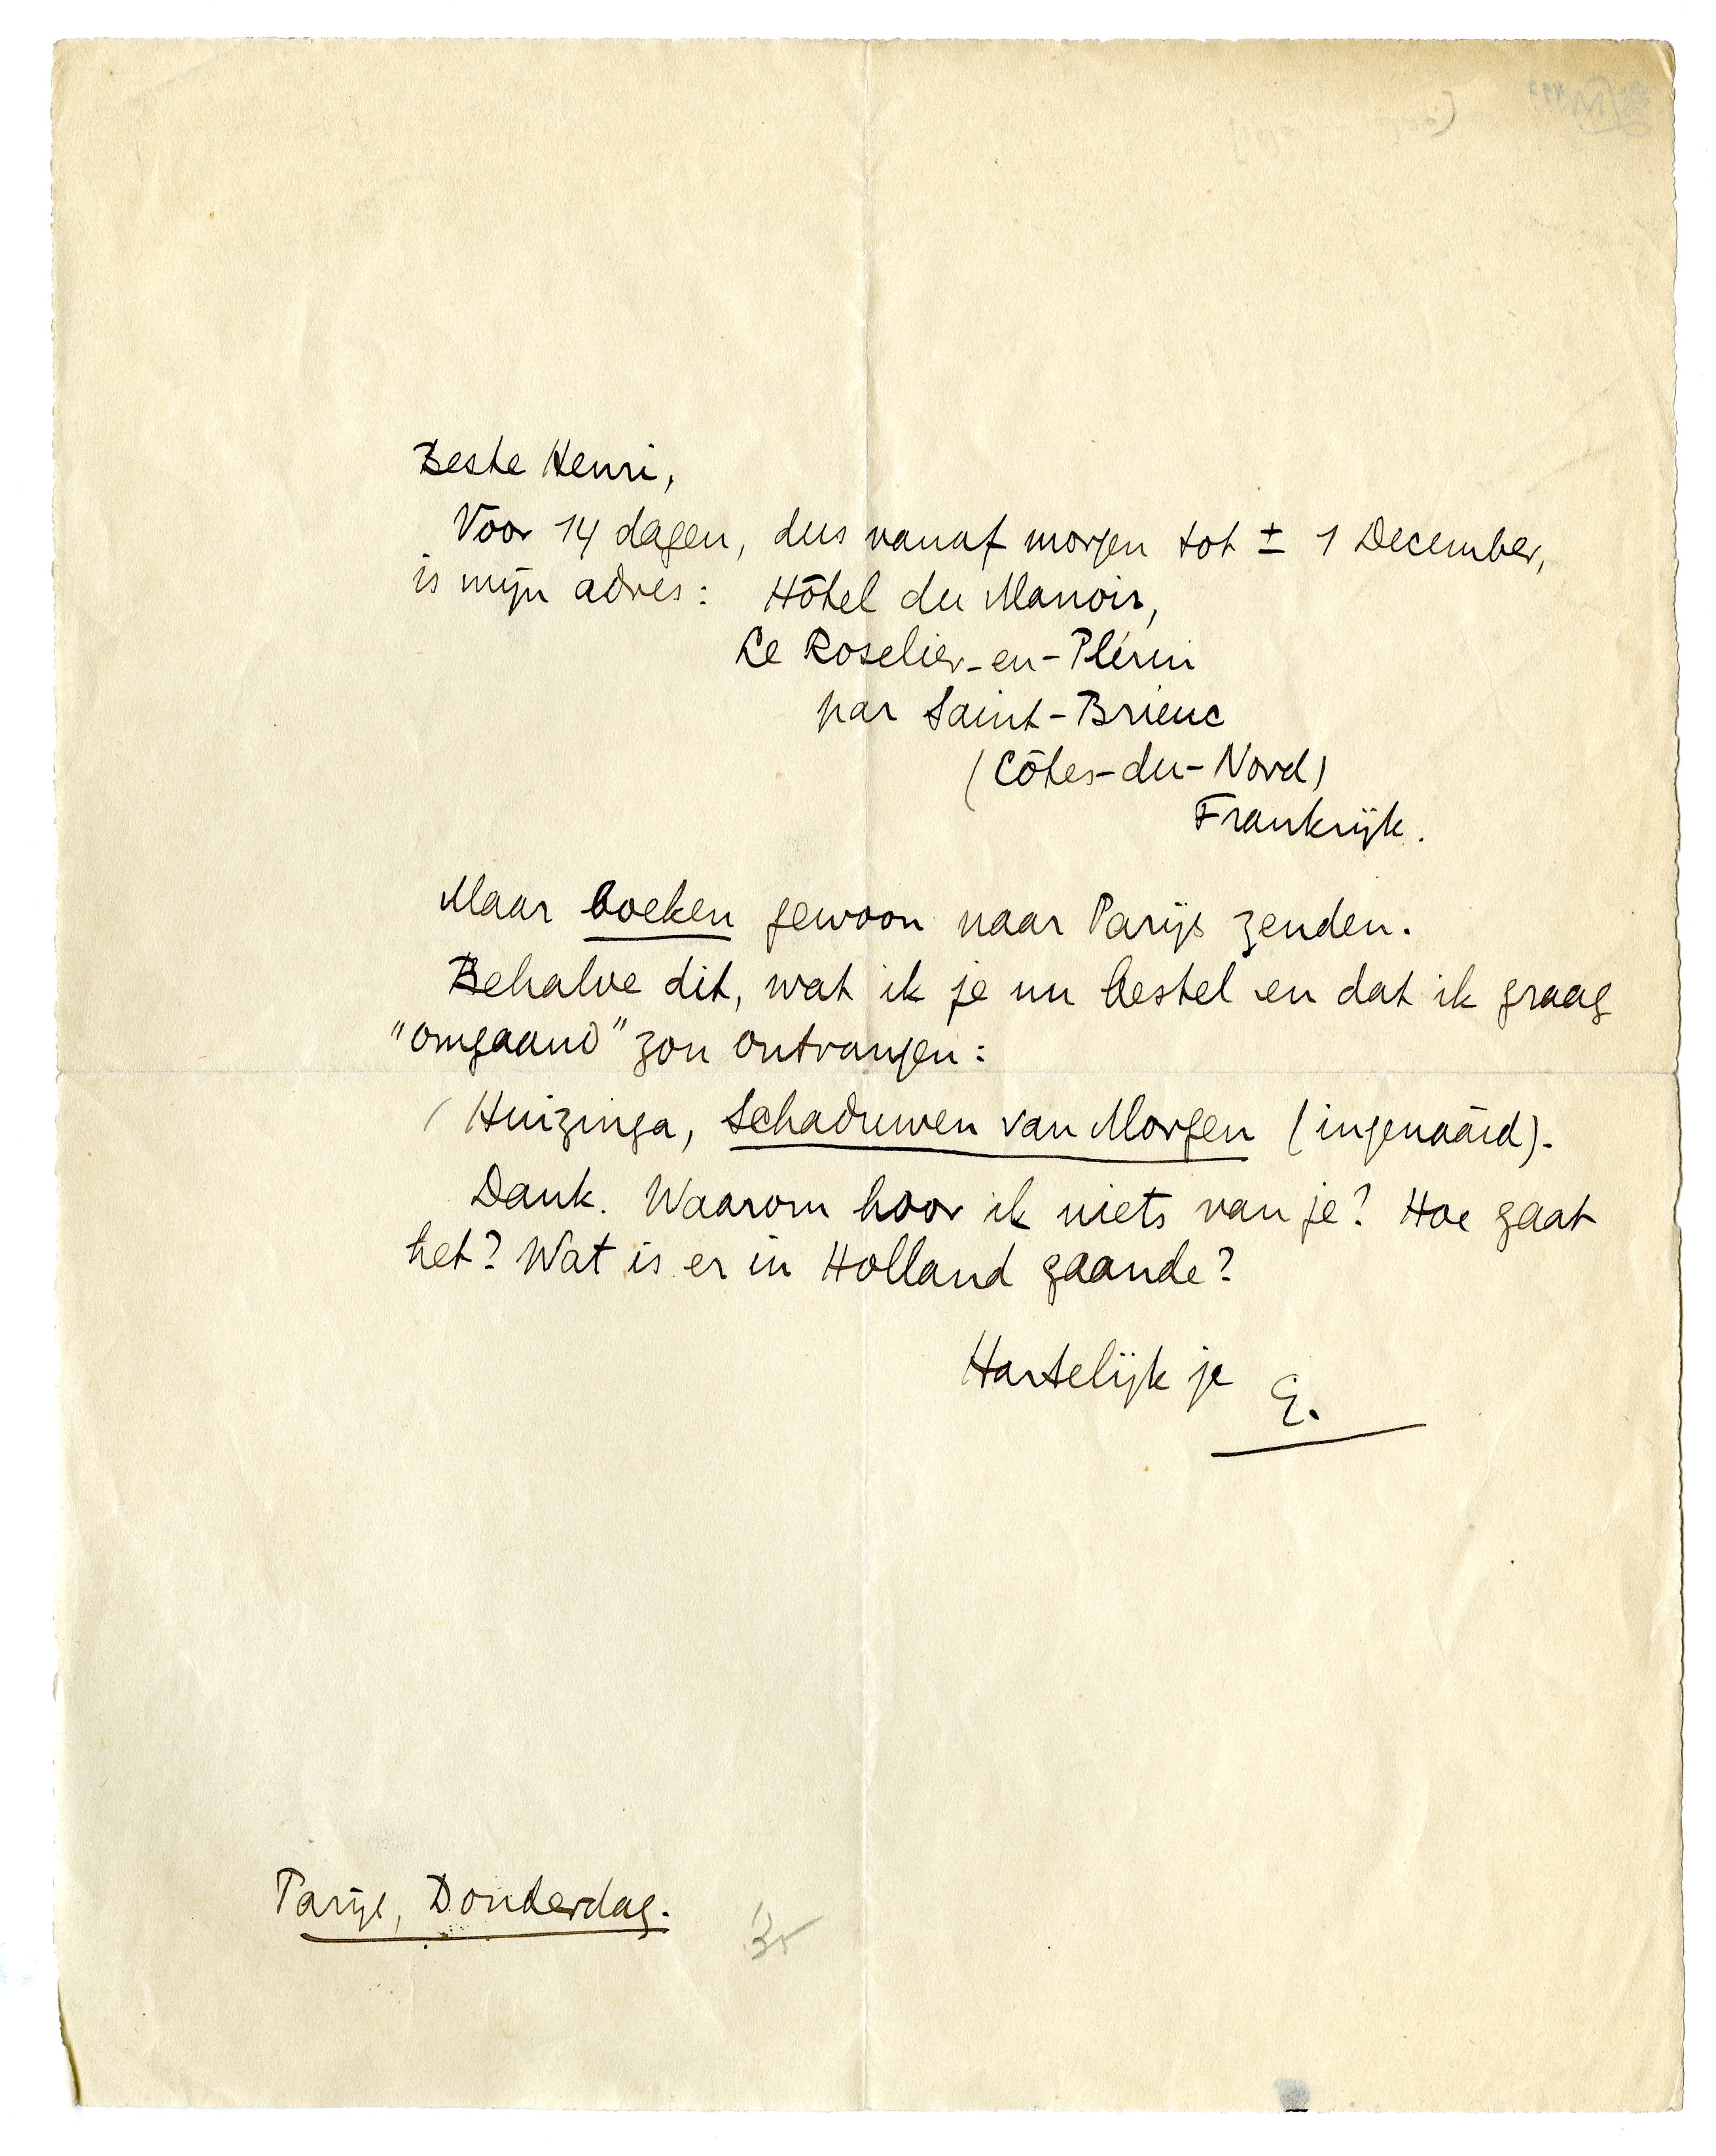 Beste Henri,
Voor 14 dagen, dus vanaf morgen tot ± 1 December,
is mijn adres: Hôtel du Manoir,
Le Roselier-en-Plérin
par Saint-Brieuc
(Côtes-du-Nord)
Frankrijk.
Maar boeken gewoon naar Parijs zenden.
Behalve dit, wat ik je nu bestel en dat ik graag
"omgaand" zou ontvangen:
Huizinga, Schaduwen van Morgen (ingenaaid).
Dank. Waarom hoor ik niets van je? Hoe gaat
het? Wat is er in Holland gaande?
Hartelijk je E.
Parijs, Donderdag.